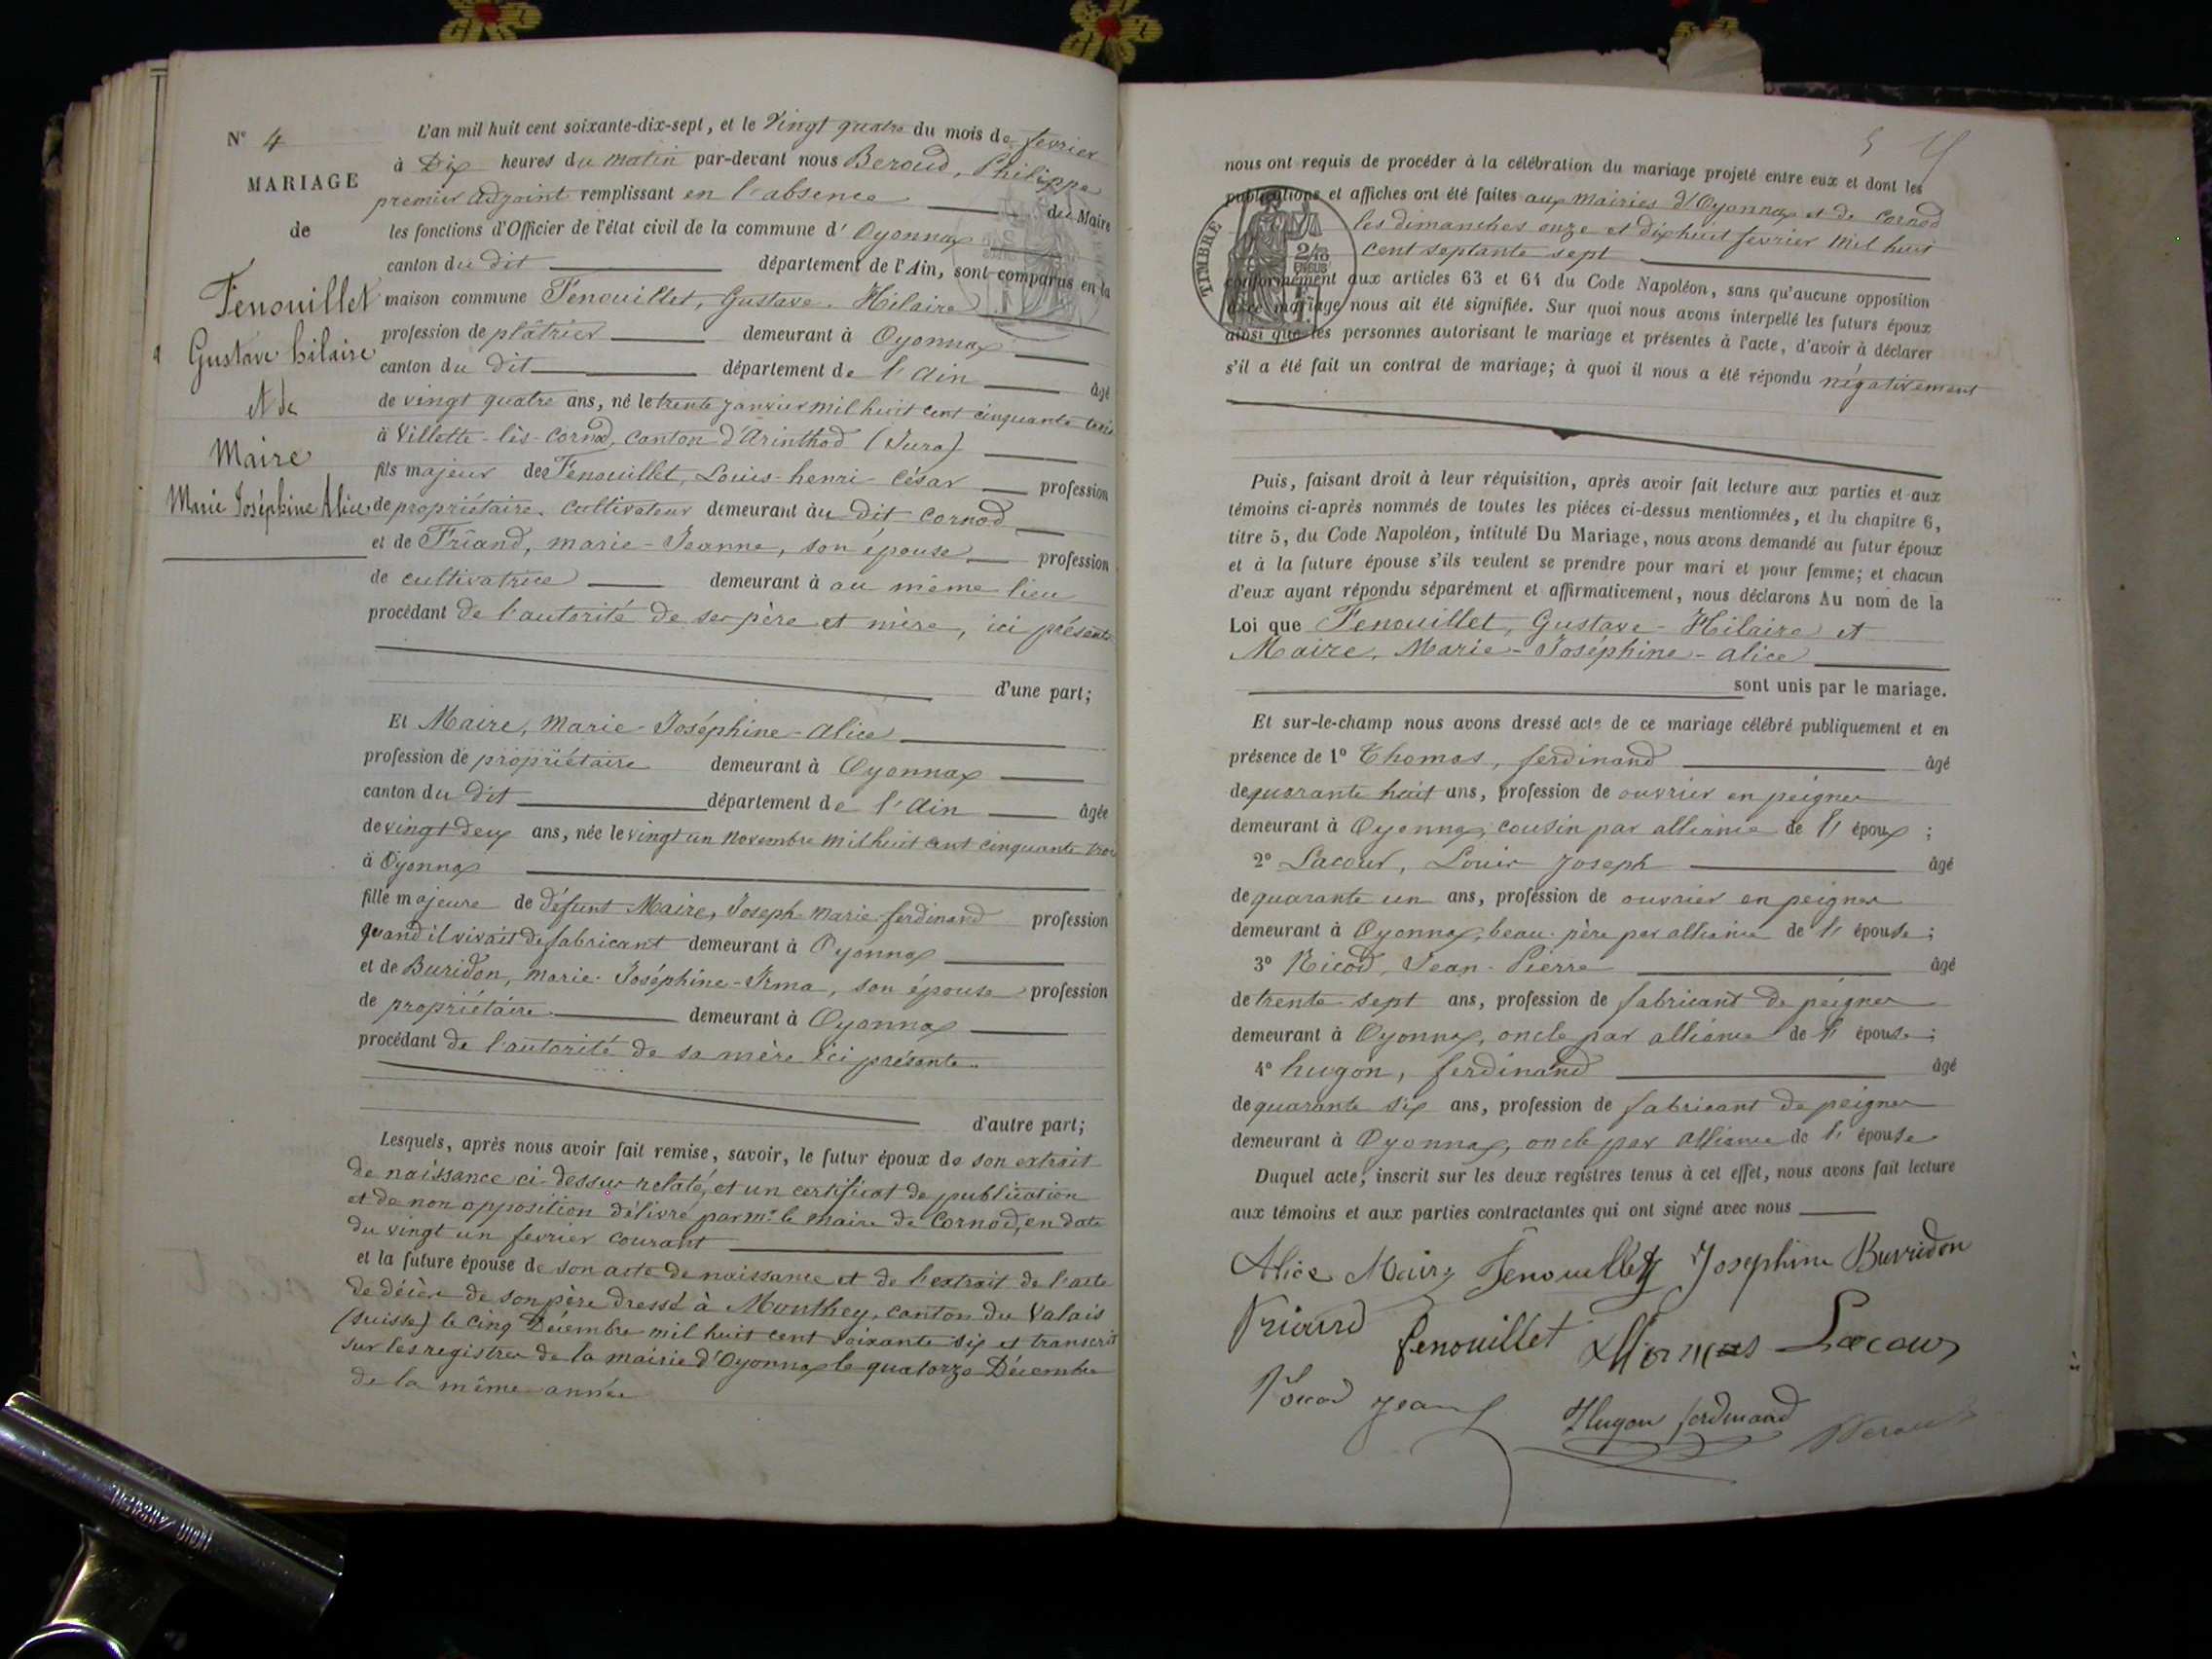 N° 4
MARIAGE
de
Fenouillet
Gustave hilaire
et de
Maire
Marie Joséphine Alice
L'an mil huit cent soixante-dix-sept, et le Vingt quatre du mois de fevrier
à Dix heures du matin par-devant nous Beroud, Philippe
premier adjoint remplissant en l'absence du Maire
les fonctions d'Officier de l'état civil de la commune d'Oyonnax
canton du dit département de l'Ain, sont comparus en la
maison commune Fenouillet, Gustave. Hilaire
profession de plâtrier demeurant à Oyonnax
canton du dit département de l'Ain âgé
de vingt quatre ans, né le trente janvier mil huit cent cinquante trois
à Villette-lès-Cornod, canton d'Arinthod (Jura)
fils majeur des Fenouillet, Louis-henri-César profession
de propriétaire. cultivateur demeurant au dit Cornod
et de Friand, marie-Jeanne, son épouse profession
de cultivatrice demeurant à au même lieu
procédant de l'autorité de ses père et mère, ici présents
d'une part;
Et Maire, Marie-Joséphine-Alice
profession de propriétaire demeurant à Oyonnax
canton du dit département de l'Ain âgée
de vingt deux ans, née le vingt un novembre mil huit cent cinquante trois
à Oyonnax
fille majeure de défunt Maire, Joseph marie ferdinand profession
quand il vivait de fabricant demeurant à Oyonnax
et de Buridon, marie-Joséphine-Irma, son épouse profession
de propriétaire demeurant à Oyonnax
procédant de l'autorité de sa mère ici présente.
d'autre part;
Lesquels, après nous avoir fait remise, savoir, le futur époux de son extrait
de naissance ci-dessus relaté, et un certificat de publication
et de non opposition délivré par mr le maire de Cornod, en date
du vingt un fevrier courant
et la future épouse de son acte de naissance et de l'extrait de l'acte
de décès de son père dressé à Monthey, canton du Valais
(Suisse) le cinq Décembre mil huit cent soixante six et transcrit
sur les registres de la mairie d'Oyonnax le quatorze Décembre
de la même année
5
nous ont requis de procéder à la célébration du mariage projeté entre eux et dont les
publications et affiches ont été faites aux mairies d'Oyonnax et de Cornod
les dimanches onze et dix huit fevrier mil huit
cent septante sept
conformément aux articles 63 et 64 du Code Napoléon, sans qu'aucune opposition
à ce mariage nous ait été signifiée. Sur quoi nous avons interpellé les futurs époux
ainsi que les personnes autorisant le mariage et présentes à l'acte, d'avoir à déclarer
s'il a été fait un contrat de mariage; à quoi il nous a été répondu négativement
TIMBRE
2/10
EN SUS
1F.
Puis, faisant droit à leur réquisition, après avoir fait lecture aux parties et aux
témoins ci-après nommés de toutes les pièces ci-dessus mentionnées, et du chapitre 6,
titre 5, du Code Napoléon, intitulé Du Mariage, nous avons demandé au futur époux
et à la future épouse s'ils veulent se prendre pour mari et pour femme; et chacun
d'eux ayant répondu séparément et affirmativement, nous déclarons Au nom de la
Loi que Fenouillet, Gustave-Hilaire et
Maire, Marie-Joséphine-Alice
sont unis par le mariage.
Et sur-le-champ nous avons dressé acte de ce mariage célébré publiquement et en
présence de 1° Thomas, ferdinand âgé
de quarante huit ans, profession de ouvrier en peignes
demeurant à Oyonnax, cousin par alliance de l' époux;
2° Lacour, Louis Joseph âgé
de quarante un ans, profession de ouvrier en peignes
demeurant à Oyonnax, beau-père par alliance de l' épouse;
3° Nicod, Jean-Pierre âgé
de trente-sept ans, profession de fabricant de peignes
demeurant à Oyonnax, oncle par alliance de l' épouse;
4° hugon, ferdinand âgé
de quarante six ans, profession de fabricant de peignes
demeurant à Oyonnax, oncle par alliance de l' épouse
Duquel acte, inscrit sur les deux registres tenus à cet effet, nous avons fait lecture
aux témoins et aux parties contractantes qui ont signé avec nous
Alice Maire Fenouillet Josephine Burridon
Friand fenouillet Thomas Lacour
Nicod Jean
Hugon ferdinand Beroud